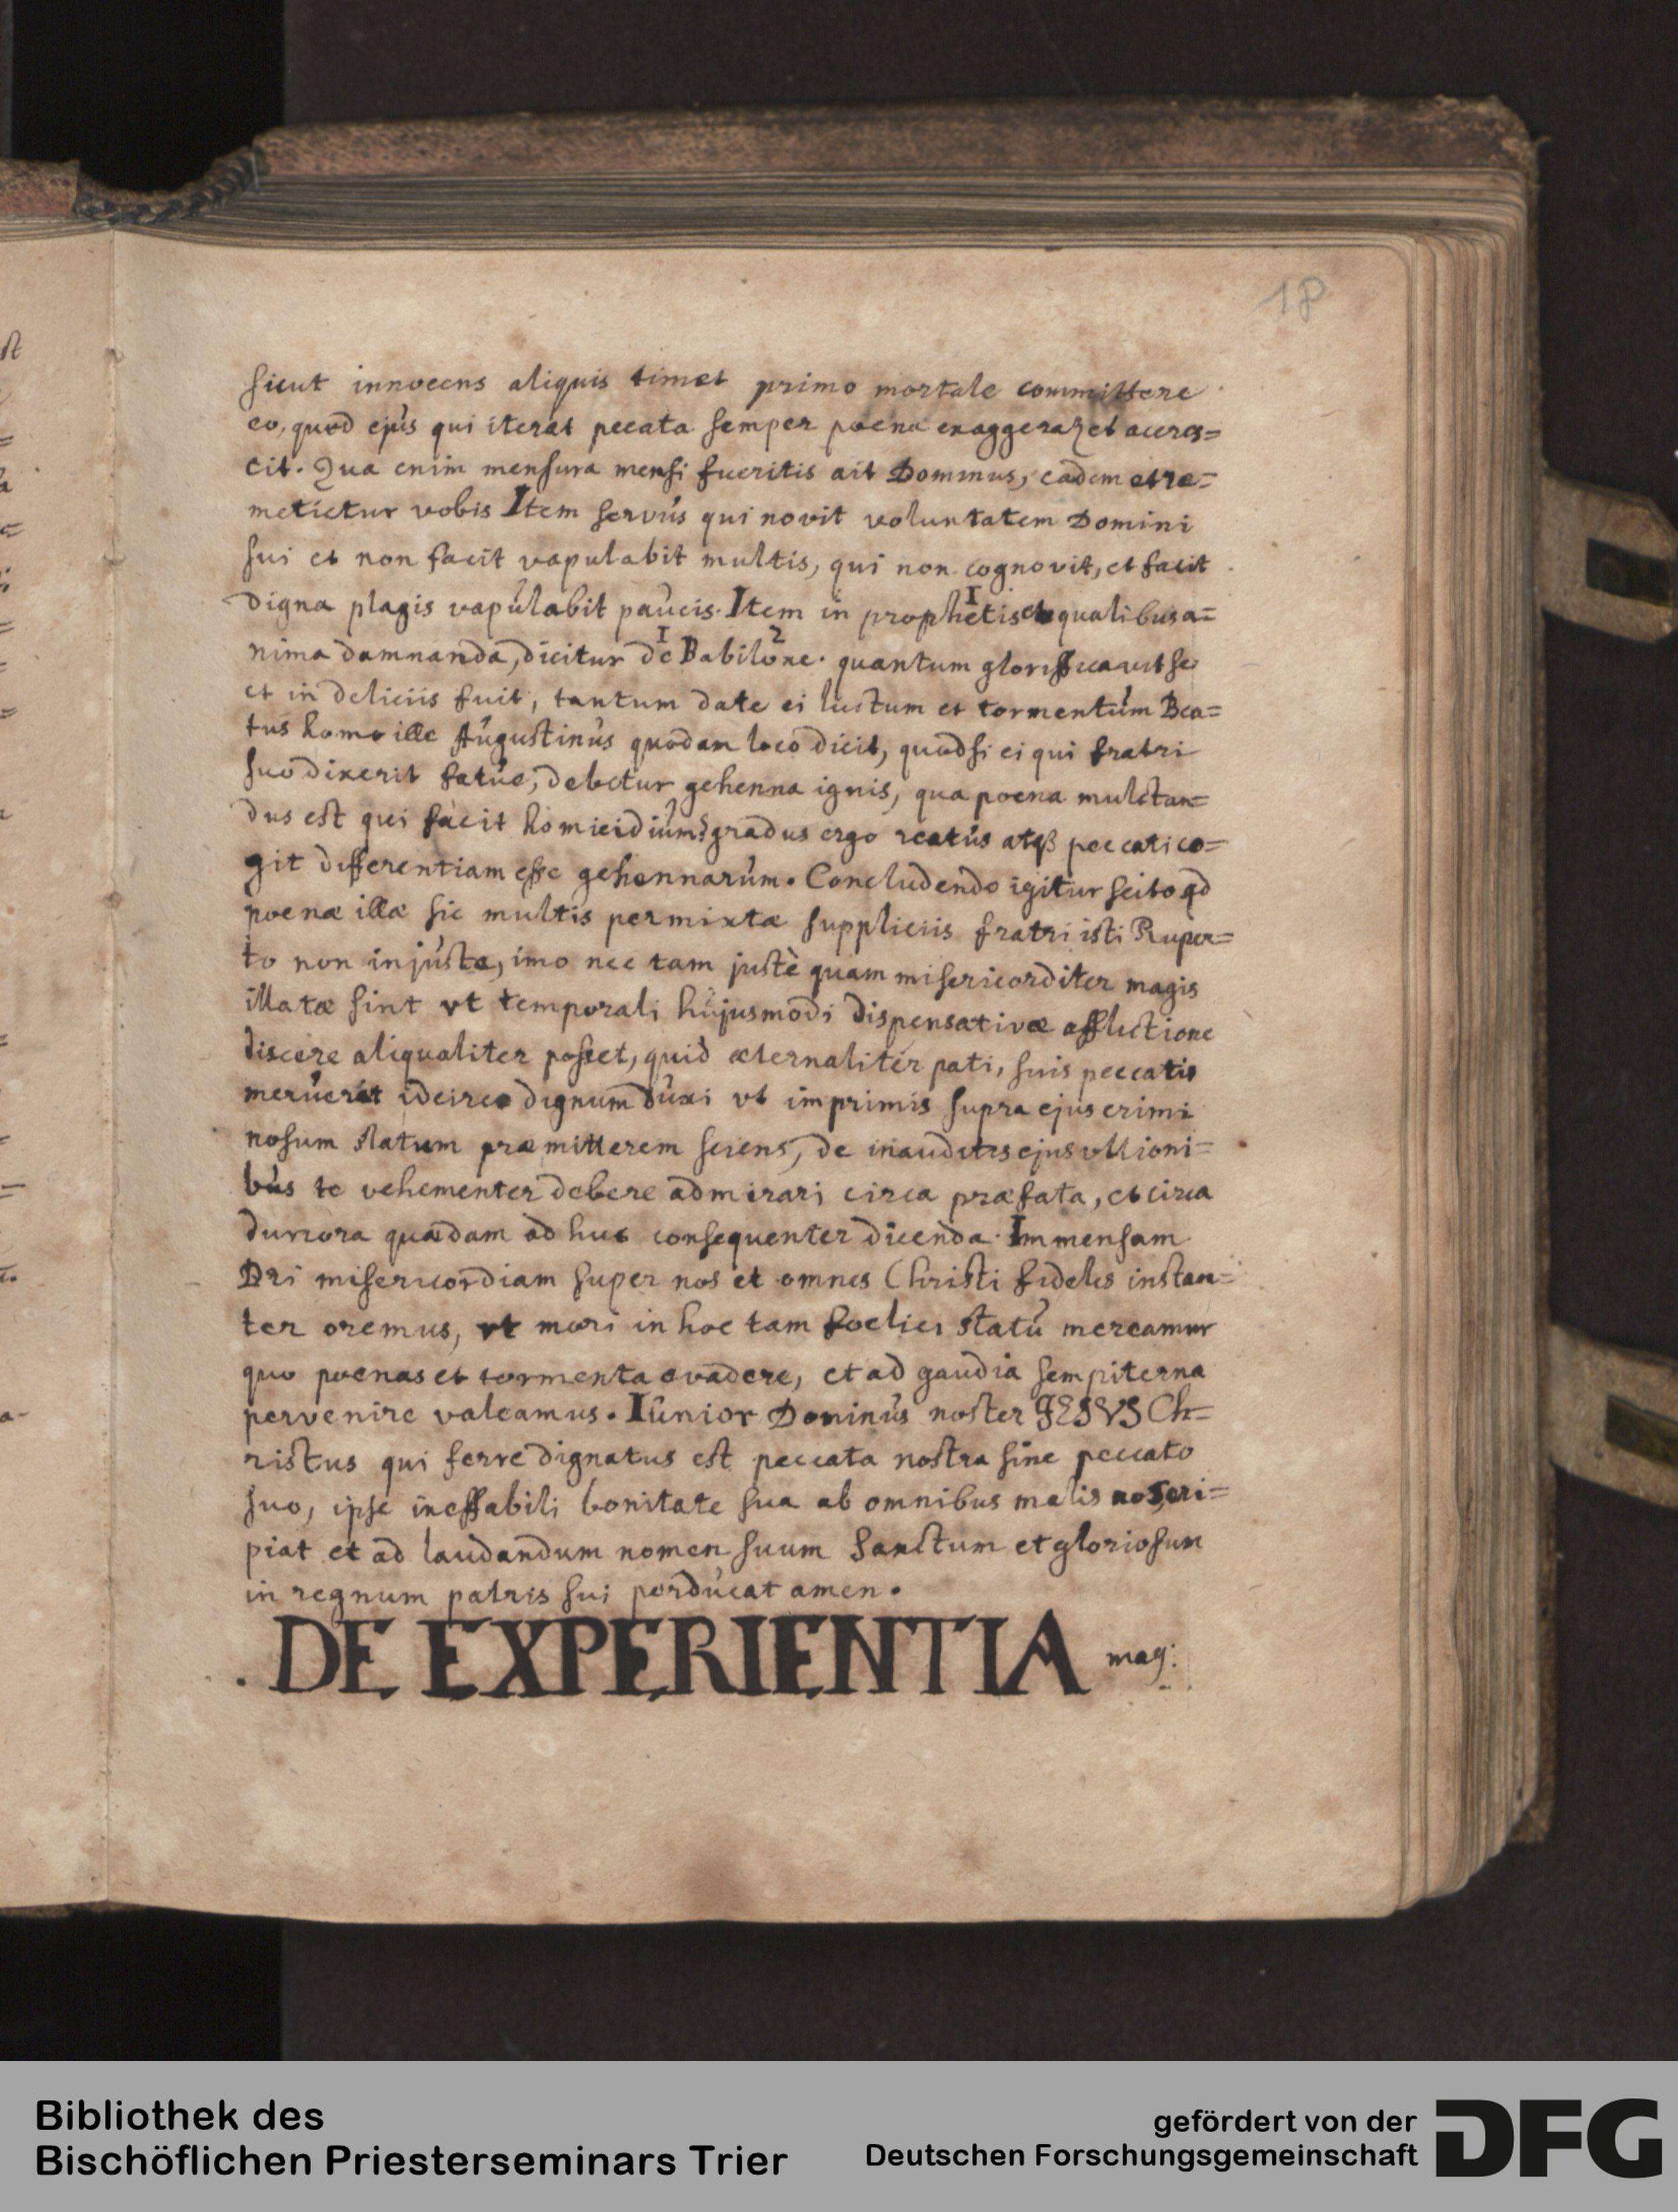 18
sicut innocens aliquis timet primo mortale committere
eo, quod ejus qui iterat pecata semper poena exaggerat et acres=
cit. Qua enim mensura mensi fueritis ait Dominus, eadem et re=
metietur vobis Item servus qui novit voluntatem Domini
sui et non facit vapulabit multis, qui non cognovit, et facit
digna plagis vapulabit paucis. Item in prophetis et qualibus a=
nima damnanda, dicitur de Babilone. quantum glorificavit se
et in deliciis fuit, tantum date ei luctum et tormentum Bea=
tus homo ille Augustinus quodam loco dicit, quodsi ei qui fratri
suo dixerit fatue, debetur gehenna ignis, qua poena mulctan=
dus est qui facit homicidium? gradus ergo reatus atqß peccati co=
git differentiam esse gehennarum. Concludendo igitur scito qd
poenæ illæ sic multis permixtæ suppliciis fratri isti Ruper=
to non injuste, imo nec tam justè quam misericorditer magis
illatæ sint vt temporali hujusmodi dispensativæ afflictione
discere aliqualiter posset, quid æternaliter pati, suis peccatis
meruerat idcirco dignum duxi vt imprimis supra ejus crimi
nosum statum præmitterem sciens, de inauditis ejus ultioni=
bus te vehementer debere admirari circa præfata, et circa
duriora quædam ad huc consequenter dicenda. Immensam
Dei misericordiam super nos et omnes Christi fideles instan=
ter oremus, vt mori in hoc tam foelici statu mereamur
quo poenas et tormenta evadere, et ad gaudia sempiterna
pervenire valeamus. Iunior Dominus noster JESVS Ch=
ristus qui ferre dignatus est peccata nostra sine peccato
suo, ipse ineffabili bonitate sua ab omnibus malis nos eri=
piat et ad laudandum nomen suum Sanctum et gloriosum
in regnum patris sui perducat amen.
. DE EXPERIENTIA mag:
Bibliothek des
Bischöflichen Priesterseminars Trier
gefördert von der
Deutschen Forschungsgemeinschaft
DFG